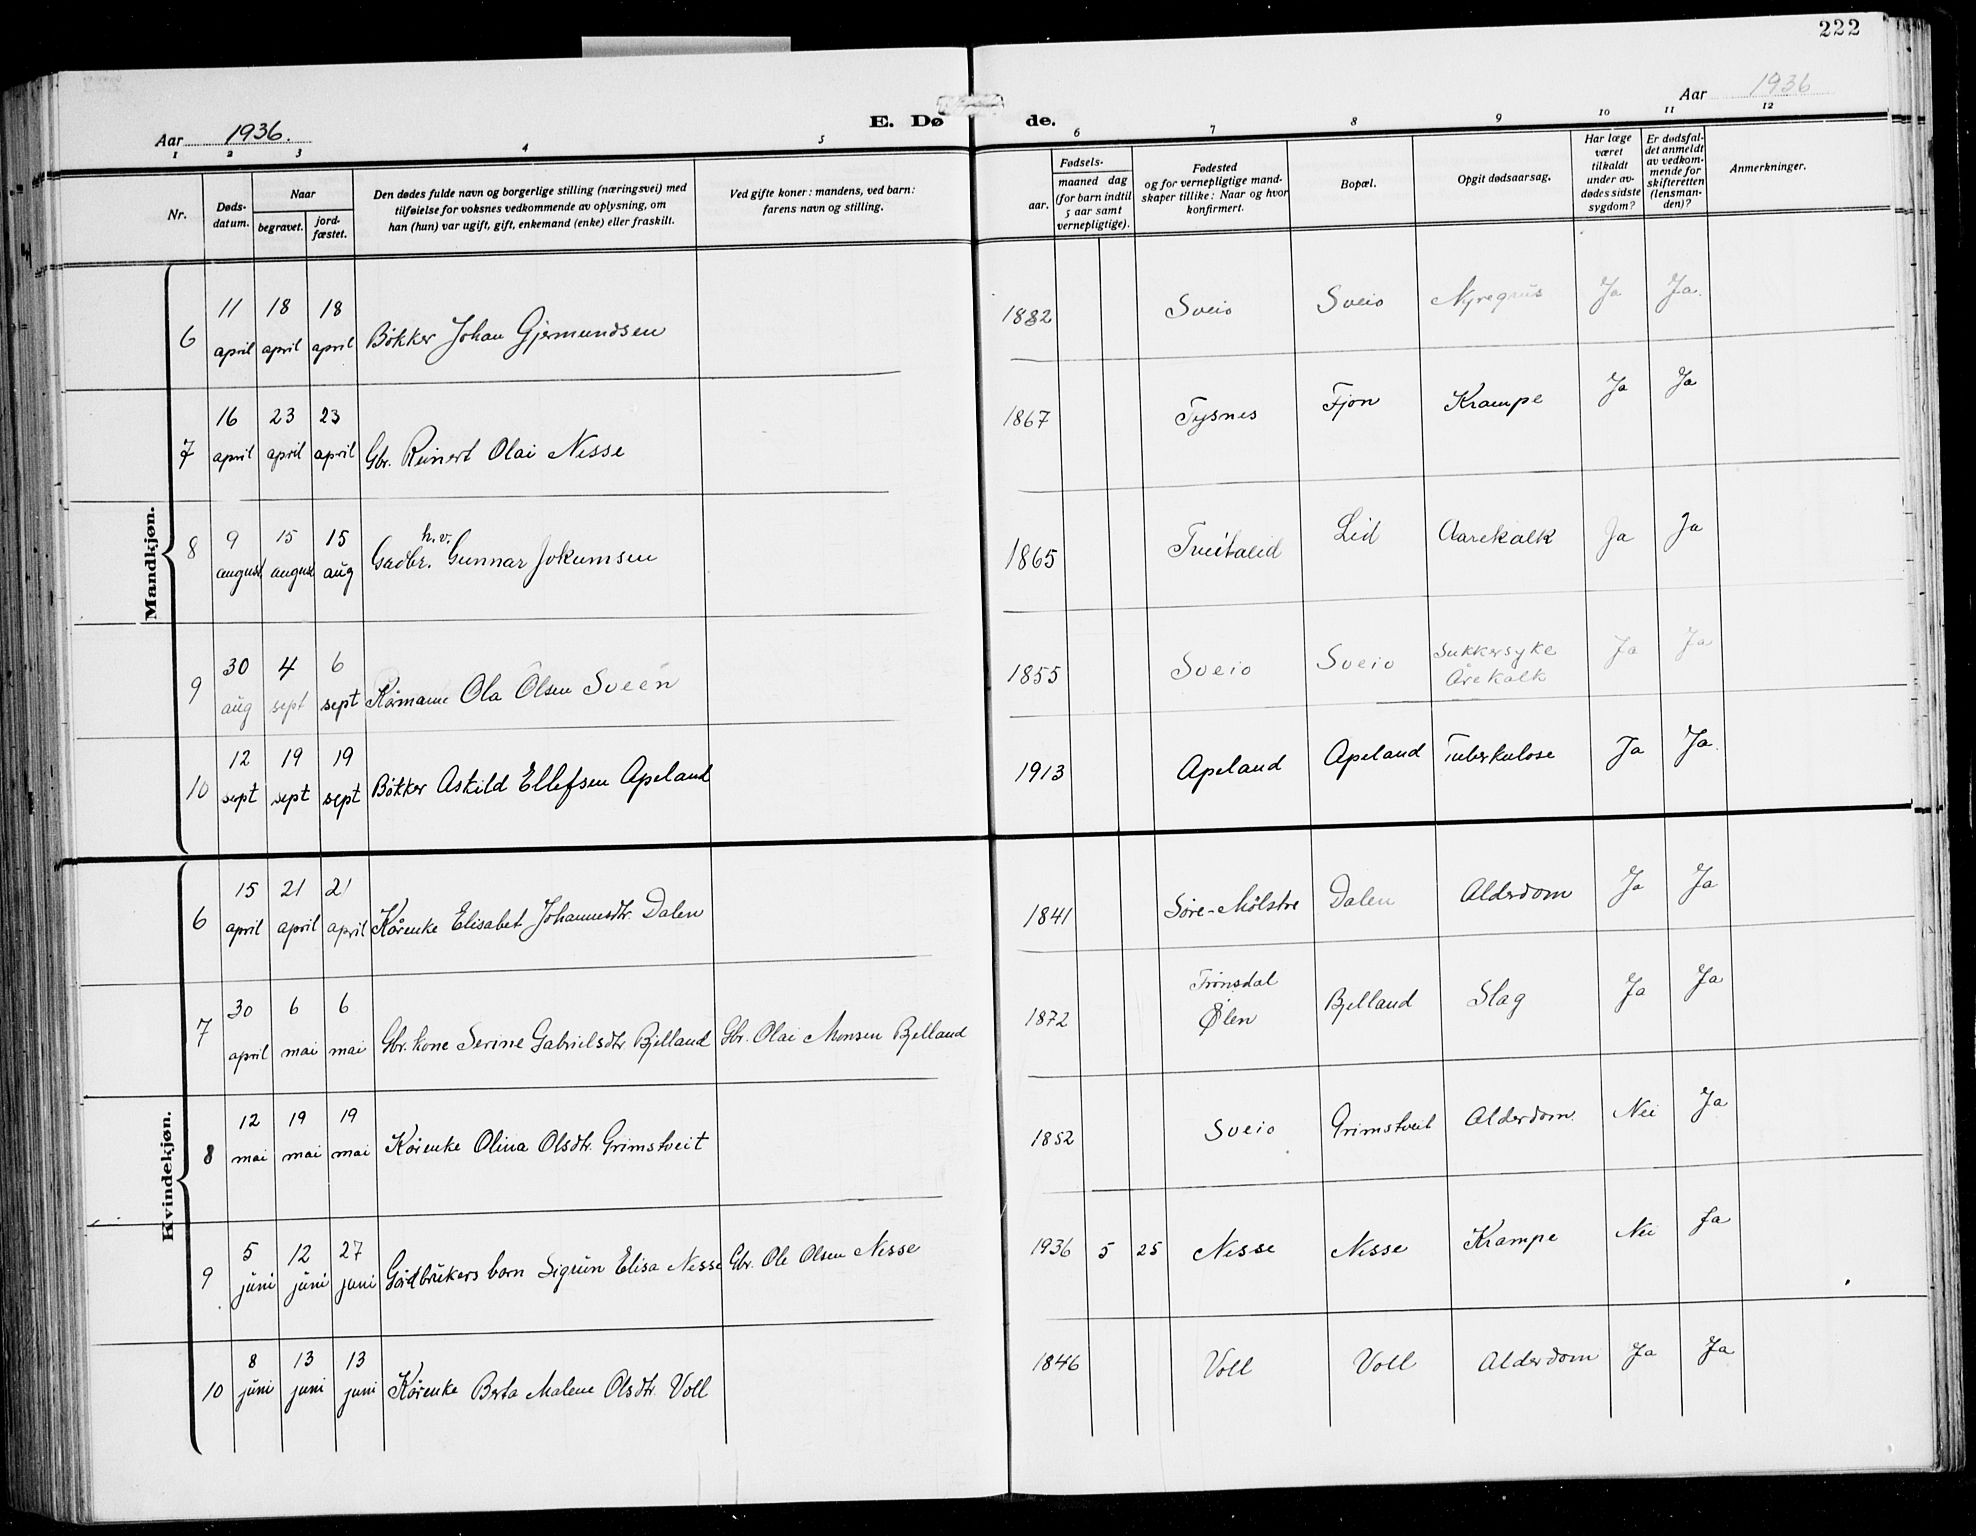 222
Aar 1936.
E. Dø de.
Aar 1936
1 2 3 4 5 6 7 8 9 10 11 12
Nr.
Døds-
datum.
Naar
begravet.
jord-
fæstet.
Den dødes fulde navn og borgerlige stilling (næringsvei) med
tilføielse for voksnes vedkommende av oplysning, om
han (hun) var ugift, gift, enkemand (enke) eller fraskilt.
Ved gifte koner: mandens, ved barn:
farens navn og stilling.
Fødsels-
aar.
maaned dag
(for barn indtil
5 aar samt
vernepligtige).
Fødested
og for vernepligtige mand-
skaper tillike: Naar og hvor
konfirmert.
Bopæl.
Opgit dødsaarsag.
Har læge
været
tilkaldt
under av-
dødes sidste
sygdom?
Er dødsfal-
det anmeldt
av vedkom-
mende for
skifteretten
(lensman-
den)?
Anmerkninger.
Mandkjøn.
6 11 april 18 april 18 april Bøkker Johan Gjermundsen 1882 Sveio Sveio Nyregrus Ja Ja.
7 16 april 23 april 23 april Gbr. Reinert Olai Nesse 1867 Tysnes Fjon Krampe Ja Ja
8 9 august 15 august 15 aug Gardbr. h.v. Gunnar Jokumsen 1865 Tveitalid Lid Aarekalk Ja Ja
9 30 aug 4 sept 6 sept Kårmann Ola Olsen Sveen 1855 Sveio Sveio Sukkersyke
Årekalk Ja Ja
10 12 sept 19 sept 19 sept Bøkker Askild Ellefsen Apeland 1913 Apeland Apeland Tuberkulose Ja Ja.
Kvindekjøn.
6 15 april 21 april 21 april Kårenke Elisabet Johannesdtr. Dalen 1841 Søre-Mølstre Dalen Alderdom Ja Ja
7 30 april 6 mai 6 mai Gbr. kone Serine Gabrielsdtr Bjelland Gbr. Olai Monsen Bjelland 1872 Trønsdal
Ølen Bjelland Slag Ja Ja
8 12 mai 19 mai 19 mai Kårenke Olina Olsdtr. Grimstveit 1852 Sveio Grimstveit Alderdom. Nei Ja
9 5 juni 12 juni 27 juni Gårdbrukers born Sigrun Elisa Nesse Gbr. Ole Olsen Nesse 1936 5 25 Nesse Nesse Krampe Nei Ja
10 8 juni 13 juni 13 juni Kårenke Berta Malene Olsdtr. Voll 1846 Voll Voll Alderdom Ja Ja